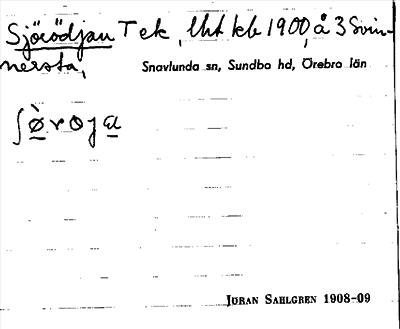 Sjörödjan T ek, lht kb 1900, å 3 Svin-
nersta,
Snavlunda sn, Sundbo hd, Örebro län
ʃø̀roja
JÖRAN SAHLGREN 1908-09